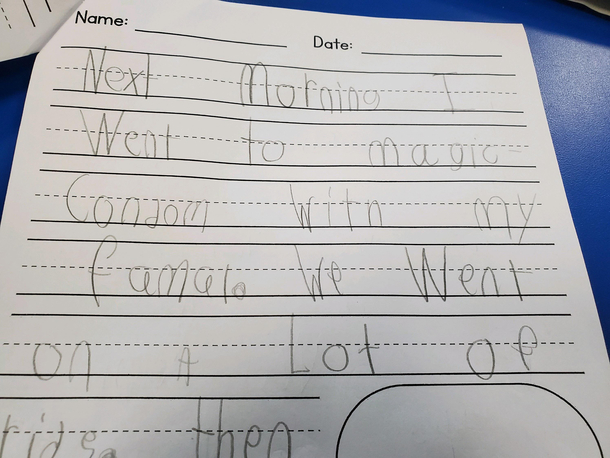 Name:
Date:
Next Morning I
Went to magic
Condom with my
famal. We Went
on A Lot of
rids. then